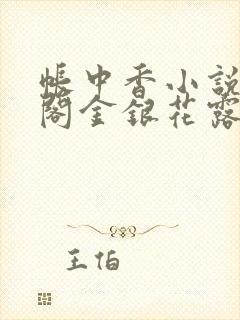 帐中香小説
阁金银花露
王怕